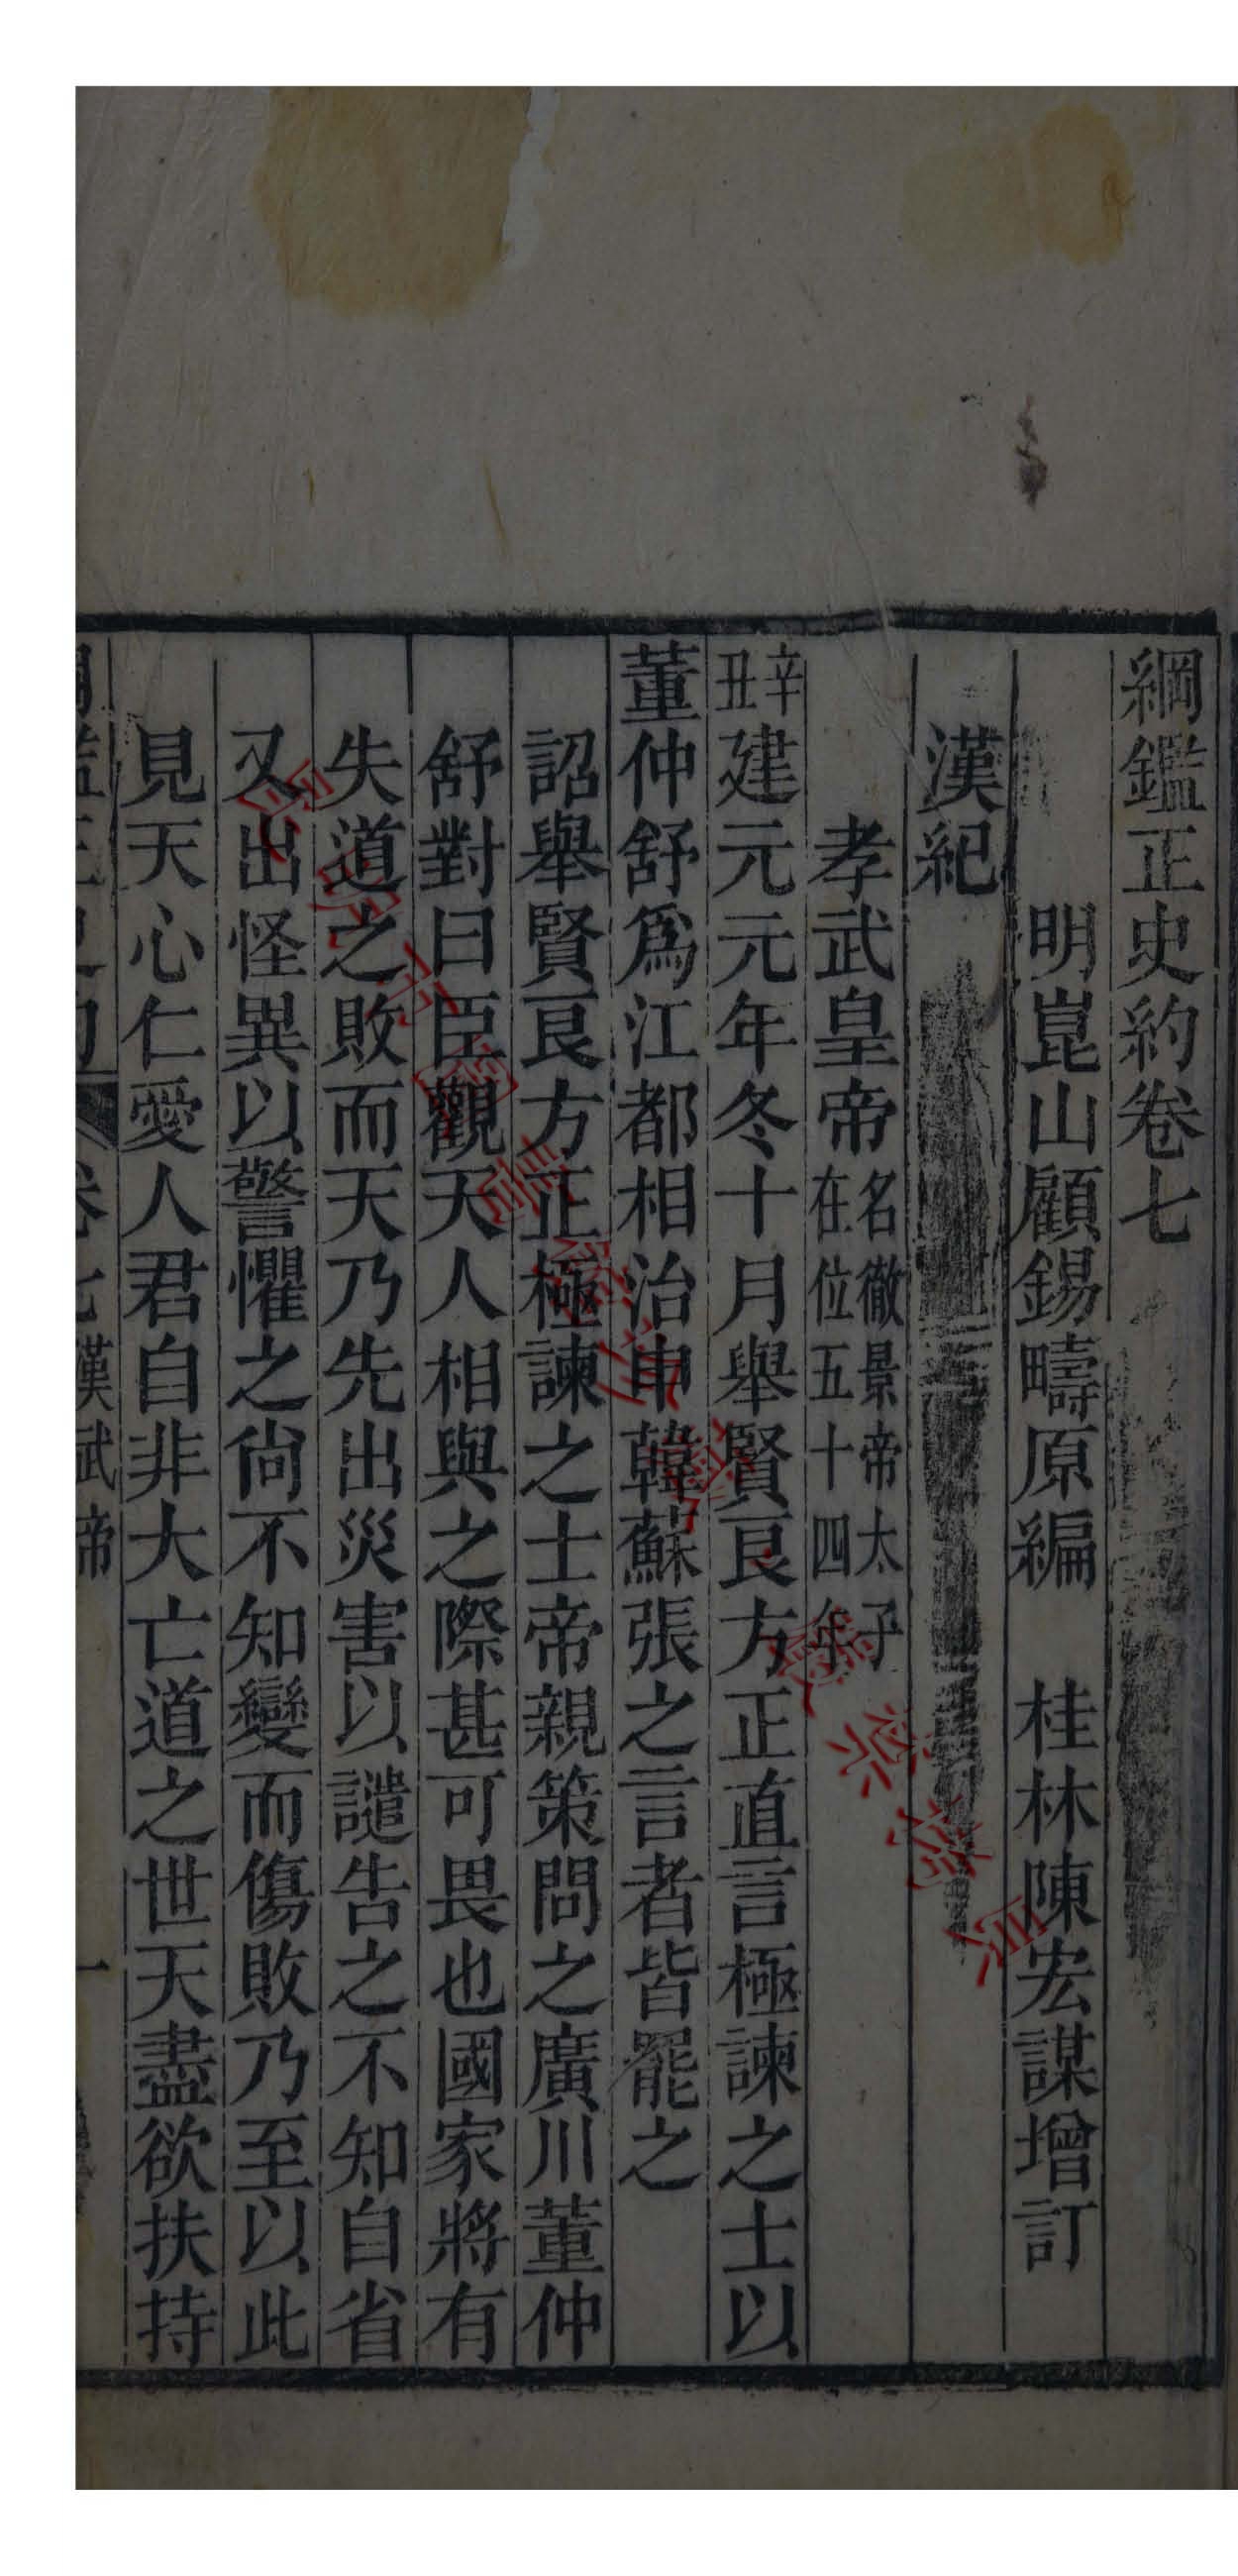 綱鑑正史約卷七
明崑山顧錫疇原編　桂林陳宏謀增訂
漢紀
孝武皇帝名徹景帝太子在位五十四年
辛丑建元元年冬十月舉賢良方正直言極諫之士以
董仲舒爲江都相治申韓蘇張之言者皆罷之
詔舉賢良方正極諫之士帝親策問之廣川董仲
舒對曰臣觀天人相與之際甚可畏也國家將有
失道之敗而天乃先出災害以譴告之不知自省
又出怪異以警懼之尙不知變而傷敗乃至以此
見天心仁愛人君自非大亡道之世天盡欲扶持
卷七漢武帝　一